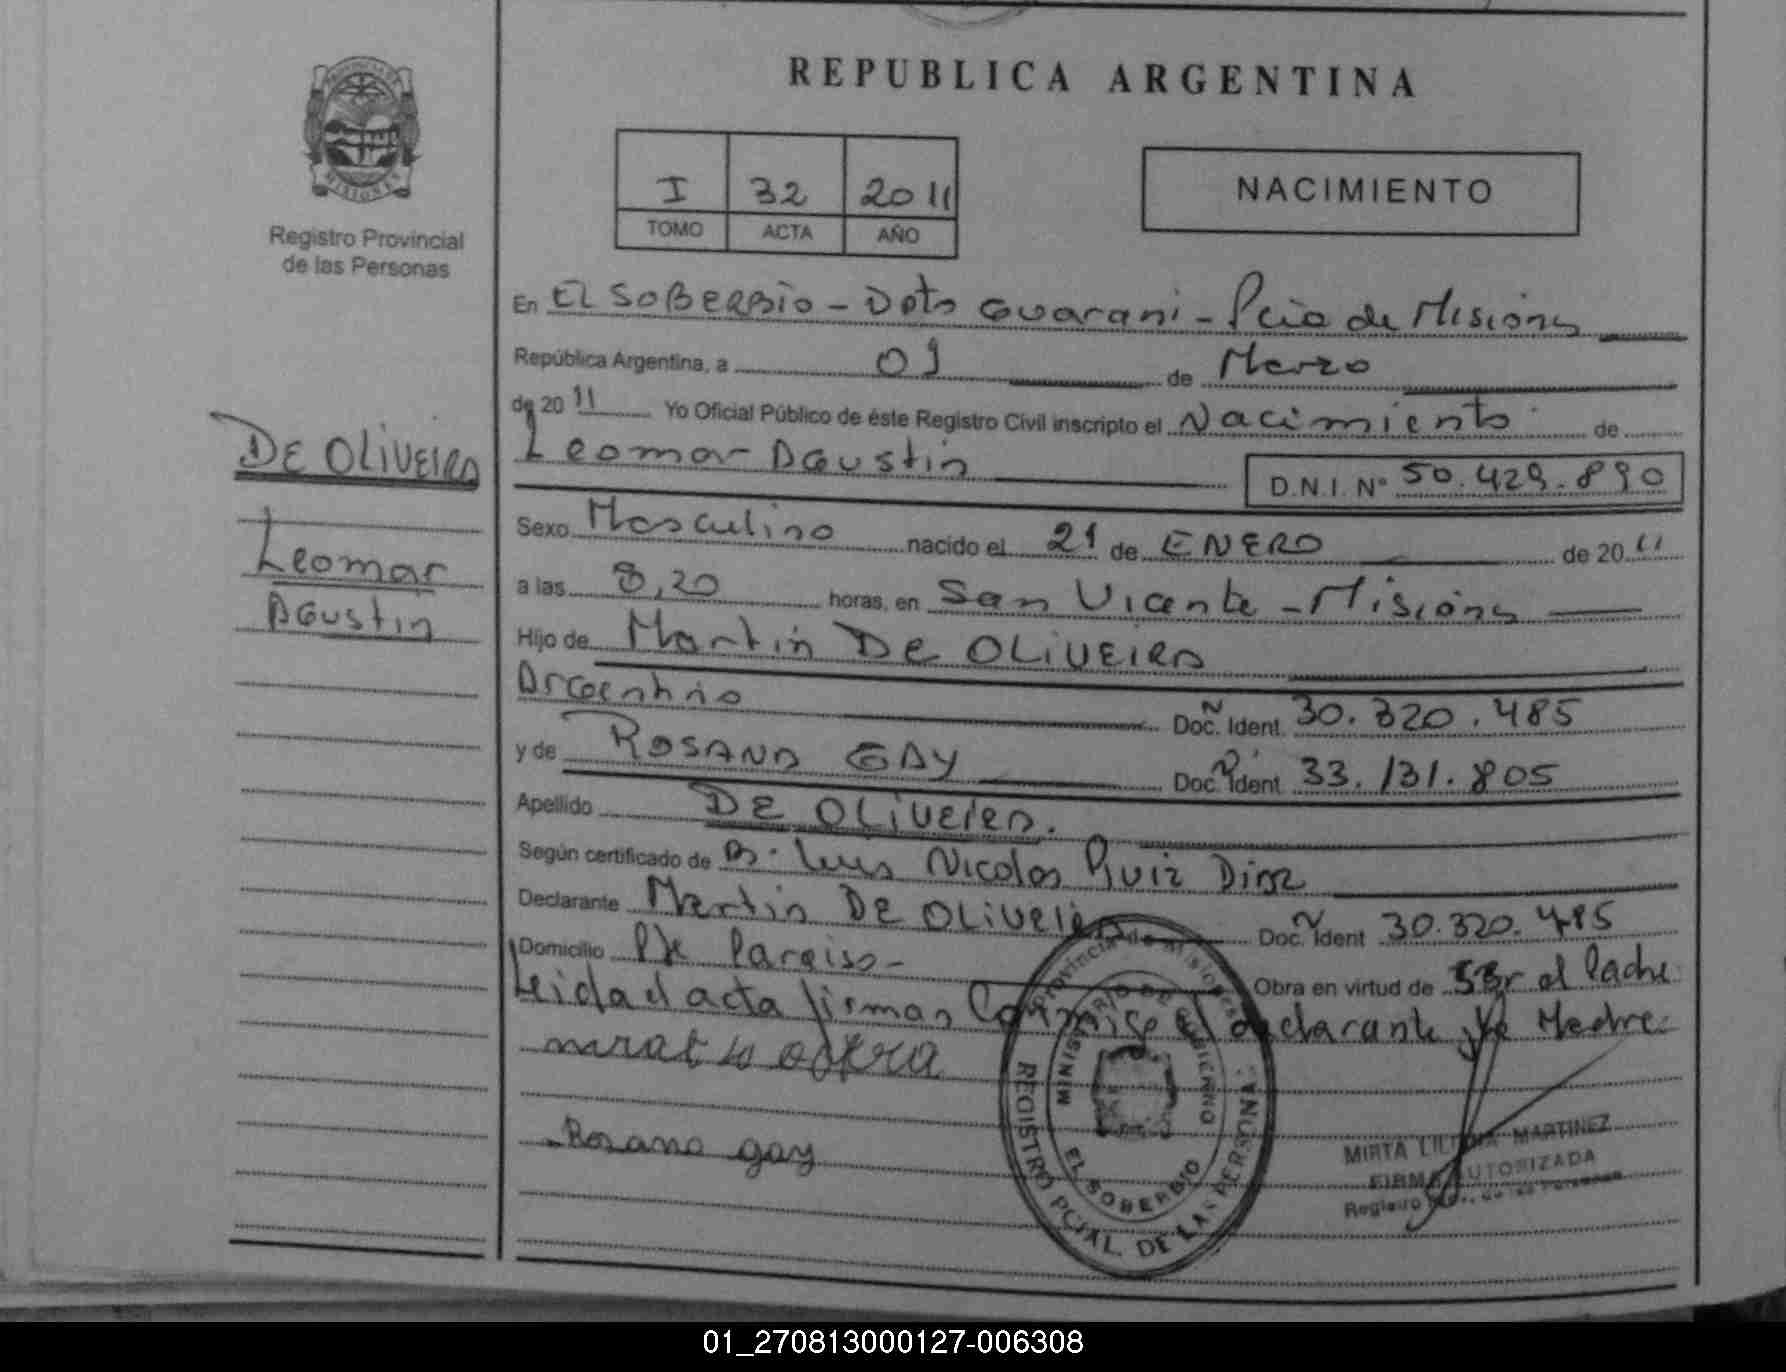 PROVINCIA DE
MISIONES
Registro Provincial
de las Personas
DE OLIVEIRA
Leomar
Agustin
REPUBLICA ARGENTINA
I 32 2011
TOMO ACTA AÑO
NACIMIENTO
En EL SOBERBIO - Dpto Guarani - Pcia de Misiones
República Argentina, a 09 de Marzo
de 2011 Yo Oficial Público de éste Registro Civil inscripto el Nacimiento de
Leomar Agustin D.N.I. Nº 50.429.890
Sexo Masculino nacido el 21 de ENERO de 2011
a las 8,20 horas, en San Vicente - Misiones
Hijo de Martin DE OLIVEIRA
Argentino Doc. Ident. 30.320.485
y de ROSANA GAY Doc. Ident 33.131.805
Apellido DE OLIVEIRA.
Según certificado de Dr. Luis Nicolas Ruiz Diaz
Declarante Martin DE OLIVEIRA Doc. Ident 30.320.485
Domicilio Pje Paraiso - Obra en virtud de ser el Padre
Leida el acta firman Conmigo el declarante y la Madre
Rosana gay
Provincia de Misiones
MINISTERIO DE GOBIERNO
EL SOBERBIO
REGISTRO PCIAL. DE LAS PERSONAS
MIRTA MARTINEZ
FIRMA AUTORIZADA
Registro de las Personas
01_270813000127-006308